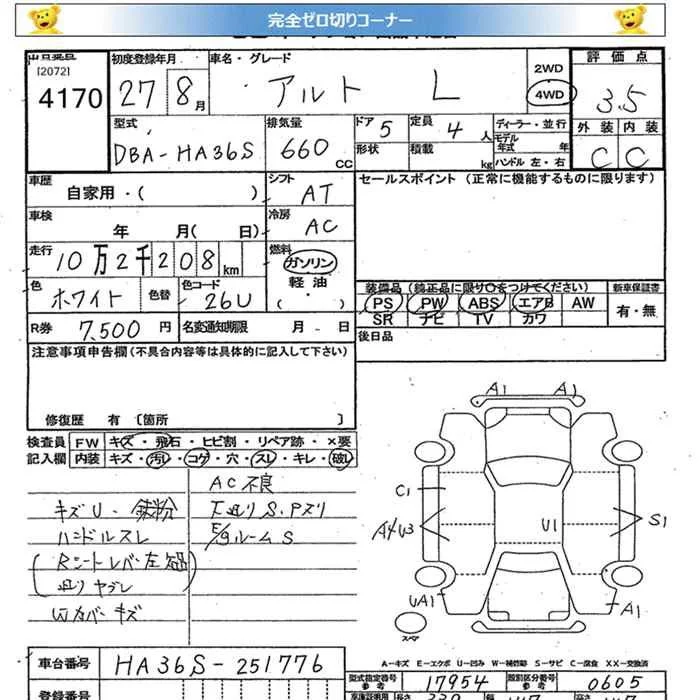 完全ゼロ切りコーナー
[2072]
4170
初度登録年月
27 8月
車名・グレード
アルト L
2WD
4WD
評価点
3.5
外装 内装
C C
型式
DBA-HA36S
排気量
660 CC
ドア 5
形状
定員 4人
積載 kg
ディーラー・並行
モデル年式 年
ハンドル 左・右
車歴
自家用・( )
シフト
AT
セールスポイント (正常に機能するものに限ります)
車検
年 月( 日)
冷房
AC
走行
10万2千208km
燃料
ガソリン
軽油
( ・ )
色
ホワイト
色替
色コード
26U
装備品 (純正品に限り○をつけてください)
PS PW ABS エアB AW
SR ナビ TV カワ
新車保証書
有・無
R券 7,500円
名変通知期限 月 日
後日品
注意事項申告欄(不具合内容等は具体的に記入して下さい)
修復歴 有 〔箇所 〕
検査員
記入欄
FW キズ・飛石・ヒビ割・リペア跡・×要
内装 キズ・汚レ・コゲ・穴・スレ・キレ・破レ
AC不良
キズU・鉄粉
下廻りS.Pズリ
ハンドルスレ
E/gルームS
Wカバーキズ
A1 A1
C1
U1
S1
UA1
A1
スペア
車台番号
HA36S-251776
A-キズ E-エクボ U-凹み W-補修跡 S-サビ C-腐食 XX-交換済
型式指定番号
参考
17954
類別区分番号
参考
0605
登録番号